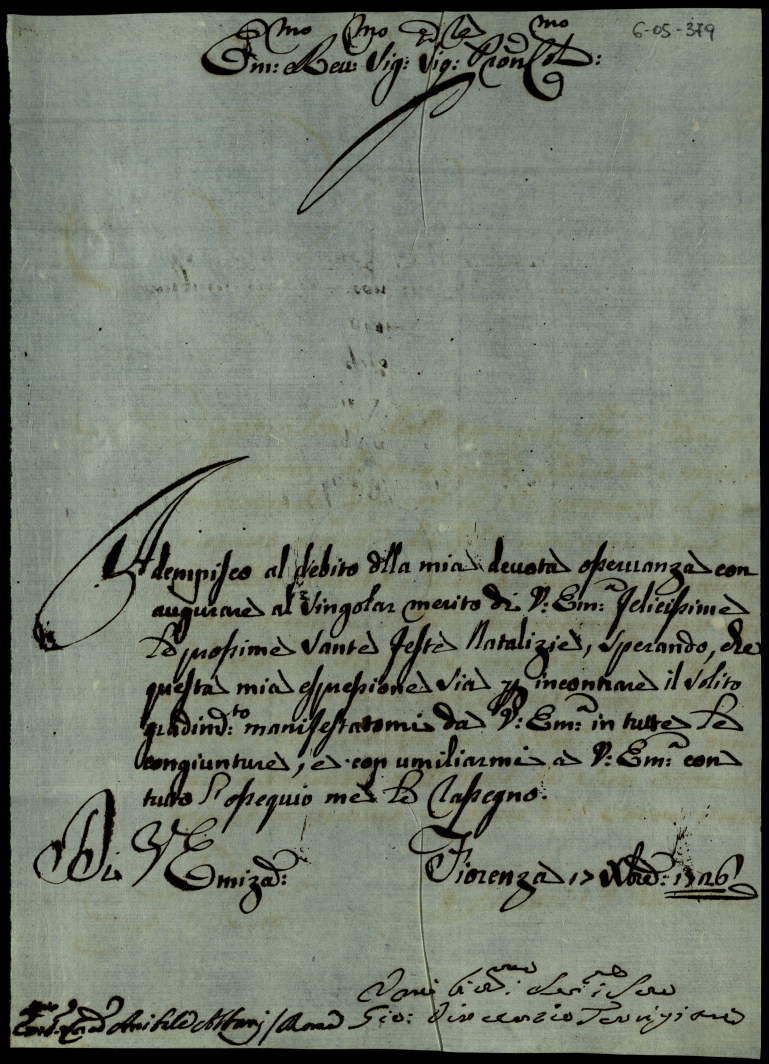 6-05-379
Em:mo e Reu:mo Sig:re Sig:re Pron Col:mo
Adempisco al debito dlla mia deuota osseruanza con
augurare al singolar merito di V: Em:a felicissime
le prossime Sante feste Natalizie, sperando, che
questa mia espressione sia p incontrare il solito
gradim:to manifestatomi da V: Em:a in tutte le
congiunture, e con umiliarmi a V: Em:a con
tutto l'ossequio me le rassegno.
Di V Emiza:
Fiorenza 17 Xbre: 1726
Annibale Albani / Roma
Gio: